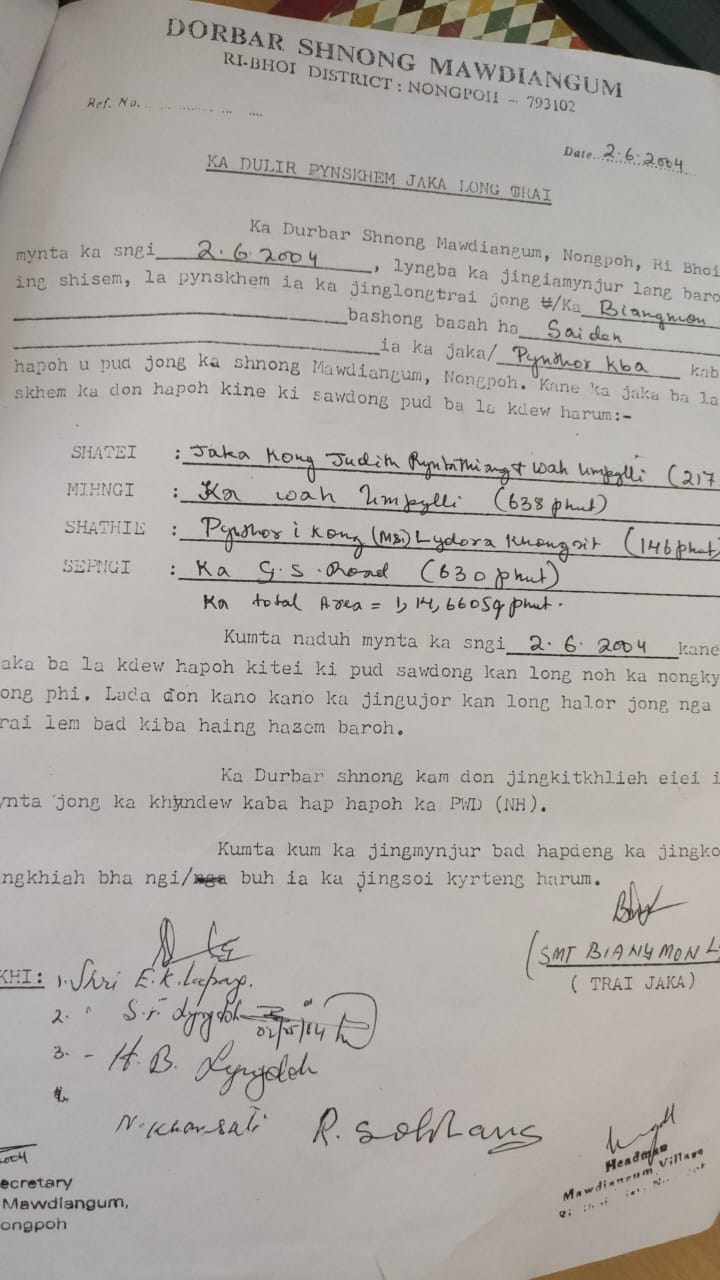 DORBAR SHNONG MAWDIANGUM
RI-BHOI DISTRICT : NONGPOH - 793102
Ref. No.
Date 2.6.2004
KA DULIR PYNSKHEM JAKA LONG TRAI
Ka Durbar Shnong Mawdiangum, Nongpoh, Ri Bhoi
mynta ka sngi 2.6.2004, lyngba ka jingiamynjur lang baro
ing shisem, la pynskhem ia ka jinglongtrai jong U/Ka Biangmon
bashong basah ha Saiden
ia ka jaka/ Pynshor kba kab
hapoh u pud jong ka shnong Mawdiangum, Nongpoh. Kane ka jaka ba la
skhem ka don hapoh kine ki sawdong pud ba la kdew harum:-
SHATEI : Jaka Kong Judith & Wah Umpylli (217
MIHNGI : Ka wah Umpylli (638 phut)
SHATHIE : Pynshor i Kong (Msi) Lydora Khongsit (146 phut)
SEPNGI : Ka G.S. Road (630 phut)
Ka total Area = 1,14,660 Sq phut.
Kumta naduh mynta ka sngi 2.6.2004 kane
aka ba la kdew hapoh kitei ki pud sawdong kan long noh ka nongky
ong phi. Lada don kano kano ka jingujor kan long halor jong nga
rai lem bad kiba haing hazem baroh.
Ka Durbar shnong kam don jingkitkhlieh eiei i
ynta jong ka khyndew kaba hap hapoh ka PWD (NH).
Kumta kum ka jingmynjur bad hapdeng ka jingko
ngkhiah bha ngi/nga buh ia ka jingsoi kyrteng harum.
(SMT BIANGMON L
( TRAI JAKA)
KHI: 1. Shri E.K.
2. "
3. - H.B. Lyngdoh
N. Kharsati R. Sohkhang
2004
ecretary
Mawdiangum,
ongpoh
Headman
Mawdiangum Village